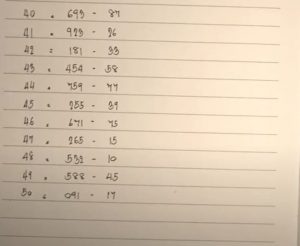 40 . 693 - 87
41 . 923 - 26
42 . 181 - 33
43 . 454 - 58
44 . 759 - 77
45 . 255 - 39
46 . 671 - 75
47 . 265 - 15
48 . 532 - 10
49 . 588 - 45
50 . 091 - 17